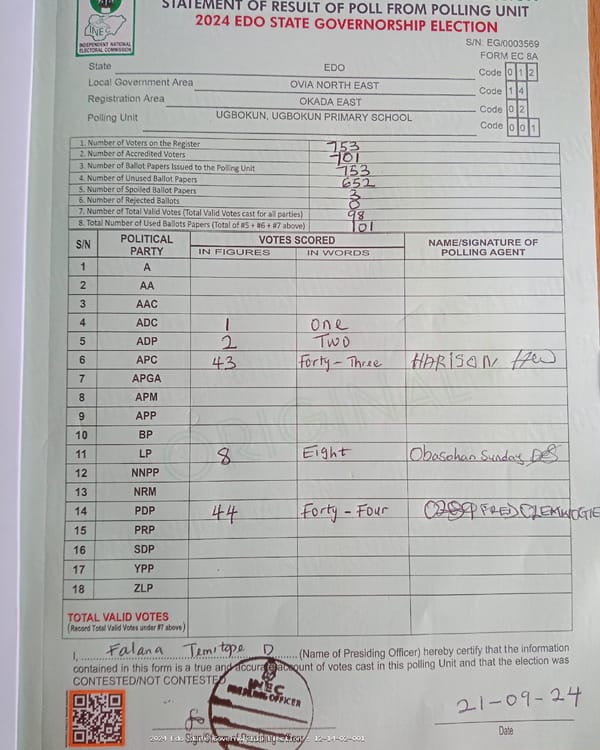 STATEMENT OF RESULT OF POLL FROM POLLING UNIT
2024 EDO STATE GOVERNORSHIP ELECTION
INEC
INDEPENDENT NATIONAL
ELECTORAL COMMISSION
S/N: EG/0003569
FORM EC 8A
State EDO Code 0 1 2
Local Government Area OVIA NORTH EAST Code 1 4
Registration Area OKADA EAST Code 0 2
Polling Unit UGBOKUN, UGBOKUN PRIMARY SCHOOL Code 0 0 1
1. Number of Voters on the Register 753
2. Number of Accredited Voters 101
3. Number of Ballot Papers Issued to the Polling Unit 753
4. Number of Unused Ballot Papers 652
5. Number of Spoiled Ballot Papers 3
6. Number of Rejected Ballots 0
7. Number of Total Valid Votes (Total Valid Votes cast for all parties) 98
8. Total Number of Used Ballots Papers (Total of #5 + #6 + #7 above) 101
S/N POLITICAL PARTY VOTES SCORED NAME/SIGNATURE OF POLLING AGENT
IN FIGURES IN WORDS
1 A
2 AA
3 AAC
4 ADC 1 One
5 ADP 2 Two
6 APC 43 Forty-Three HARISON
7 APGA
8 APM
9 APP
10 BP
11 LP 8 Eight Obasohan Sunday
12 NNPP
13 NRM
14 PDP 44 Forty-Four FRED
15 PRP
16 SDP
17 YPP
18 ZLP
TOTAL VALID VOTES
(Record Total Valid Votes under #7 above)
ORIGINAL
I, Falana Temitope D (Name of Presiding Officer) hereby certify that the information
contained in this form is a true and accurate account of votes cast in this polling Unit and that the election was
CONTESTED/NOT CONTESTED
INEC
PRESIDING OFFICER
21-09-24
Date